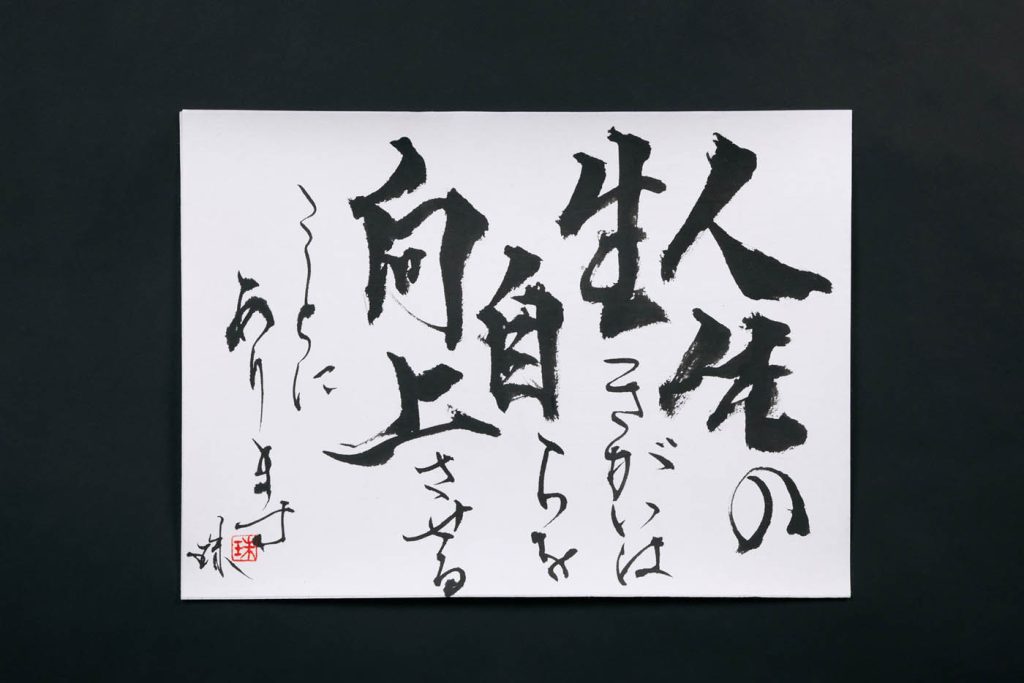 人生の
生きがいは
自らを
向上させる
ことに
あります
珠
珠